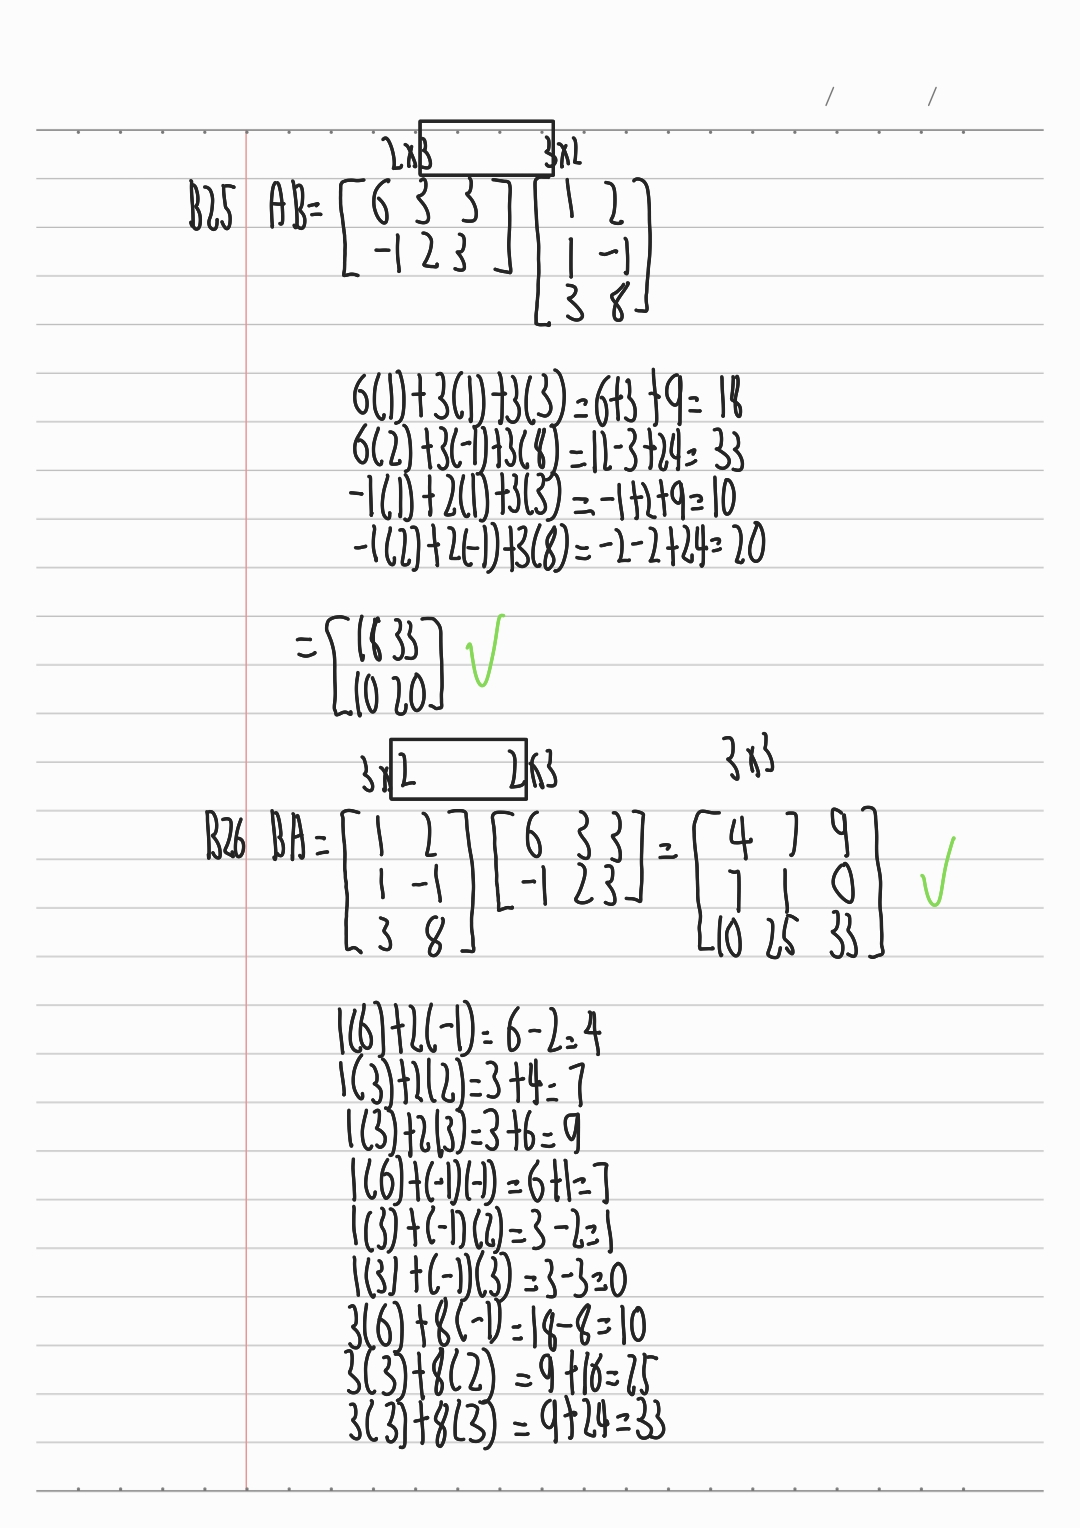 / /
2x3 3x2
B25 AB= [6 3 3] [1 2]
[-1 2 3] [1 -1]
[3 8]
6(1)+3(1)+3(3)=6+3+9=18
6(2)+3(-1)+3(8)=12-3+24=33
-1(1)+2(1)+3(3)=-1+2+9=10
-1(2)+2(-1)+3(8)=-2-2+24=20
=[18 33] ✓
[10 20]
3x2 2x3 3x3
B26 BA= [1 2] [6 3 3] = [4 7 9]
[1 -1] [-1 2 3] [7 1 0] ✓
[3 8] [10 25 33]
1(6)+2(-1)=6-2=4
1(3)+2(2)=3+4=7
1(3)+2(3)=3+6=9
1(6)+(-1)(-1)=6+1=7
1(3)+(-1)(2)=3-2=1
1(3)+(-1)(3)=3-3=0
3(6)+8(-1)=18-8=10
3(3)+8(2)=9+16=25
3(3)+8(3)=9+24=33